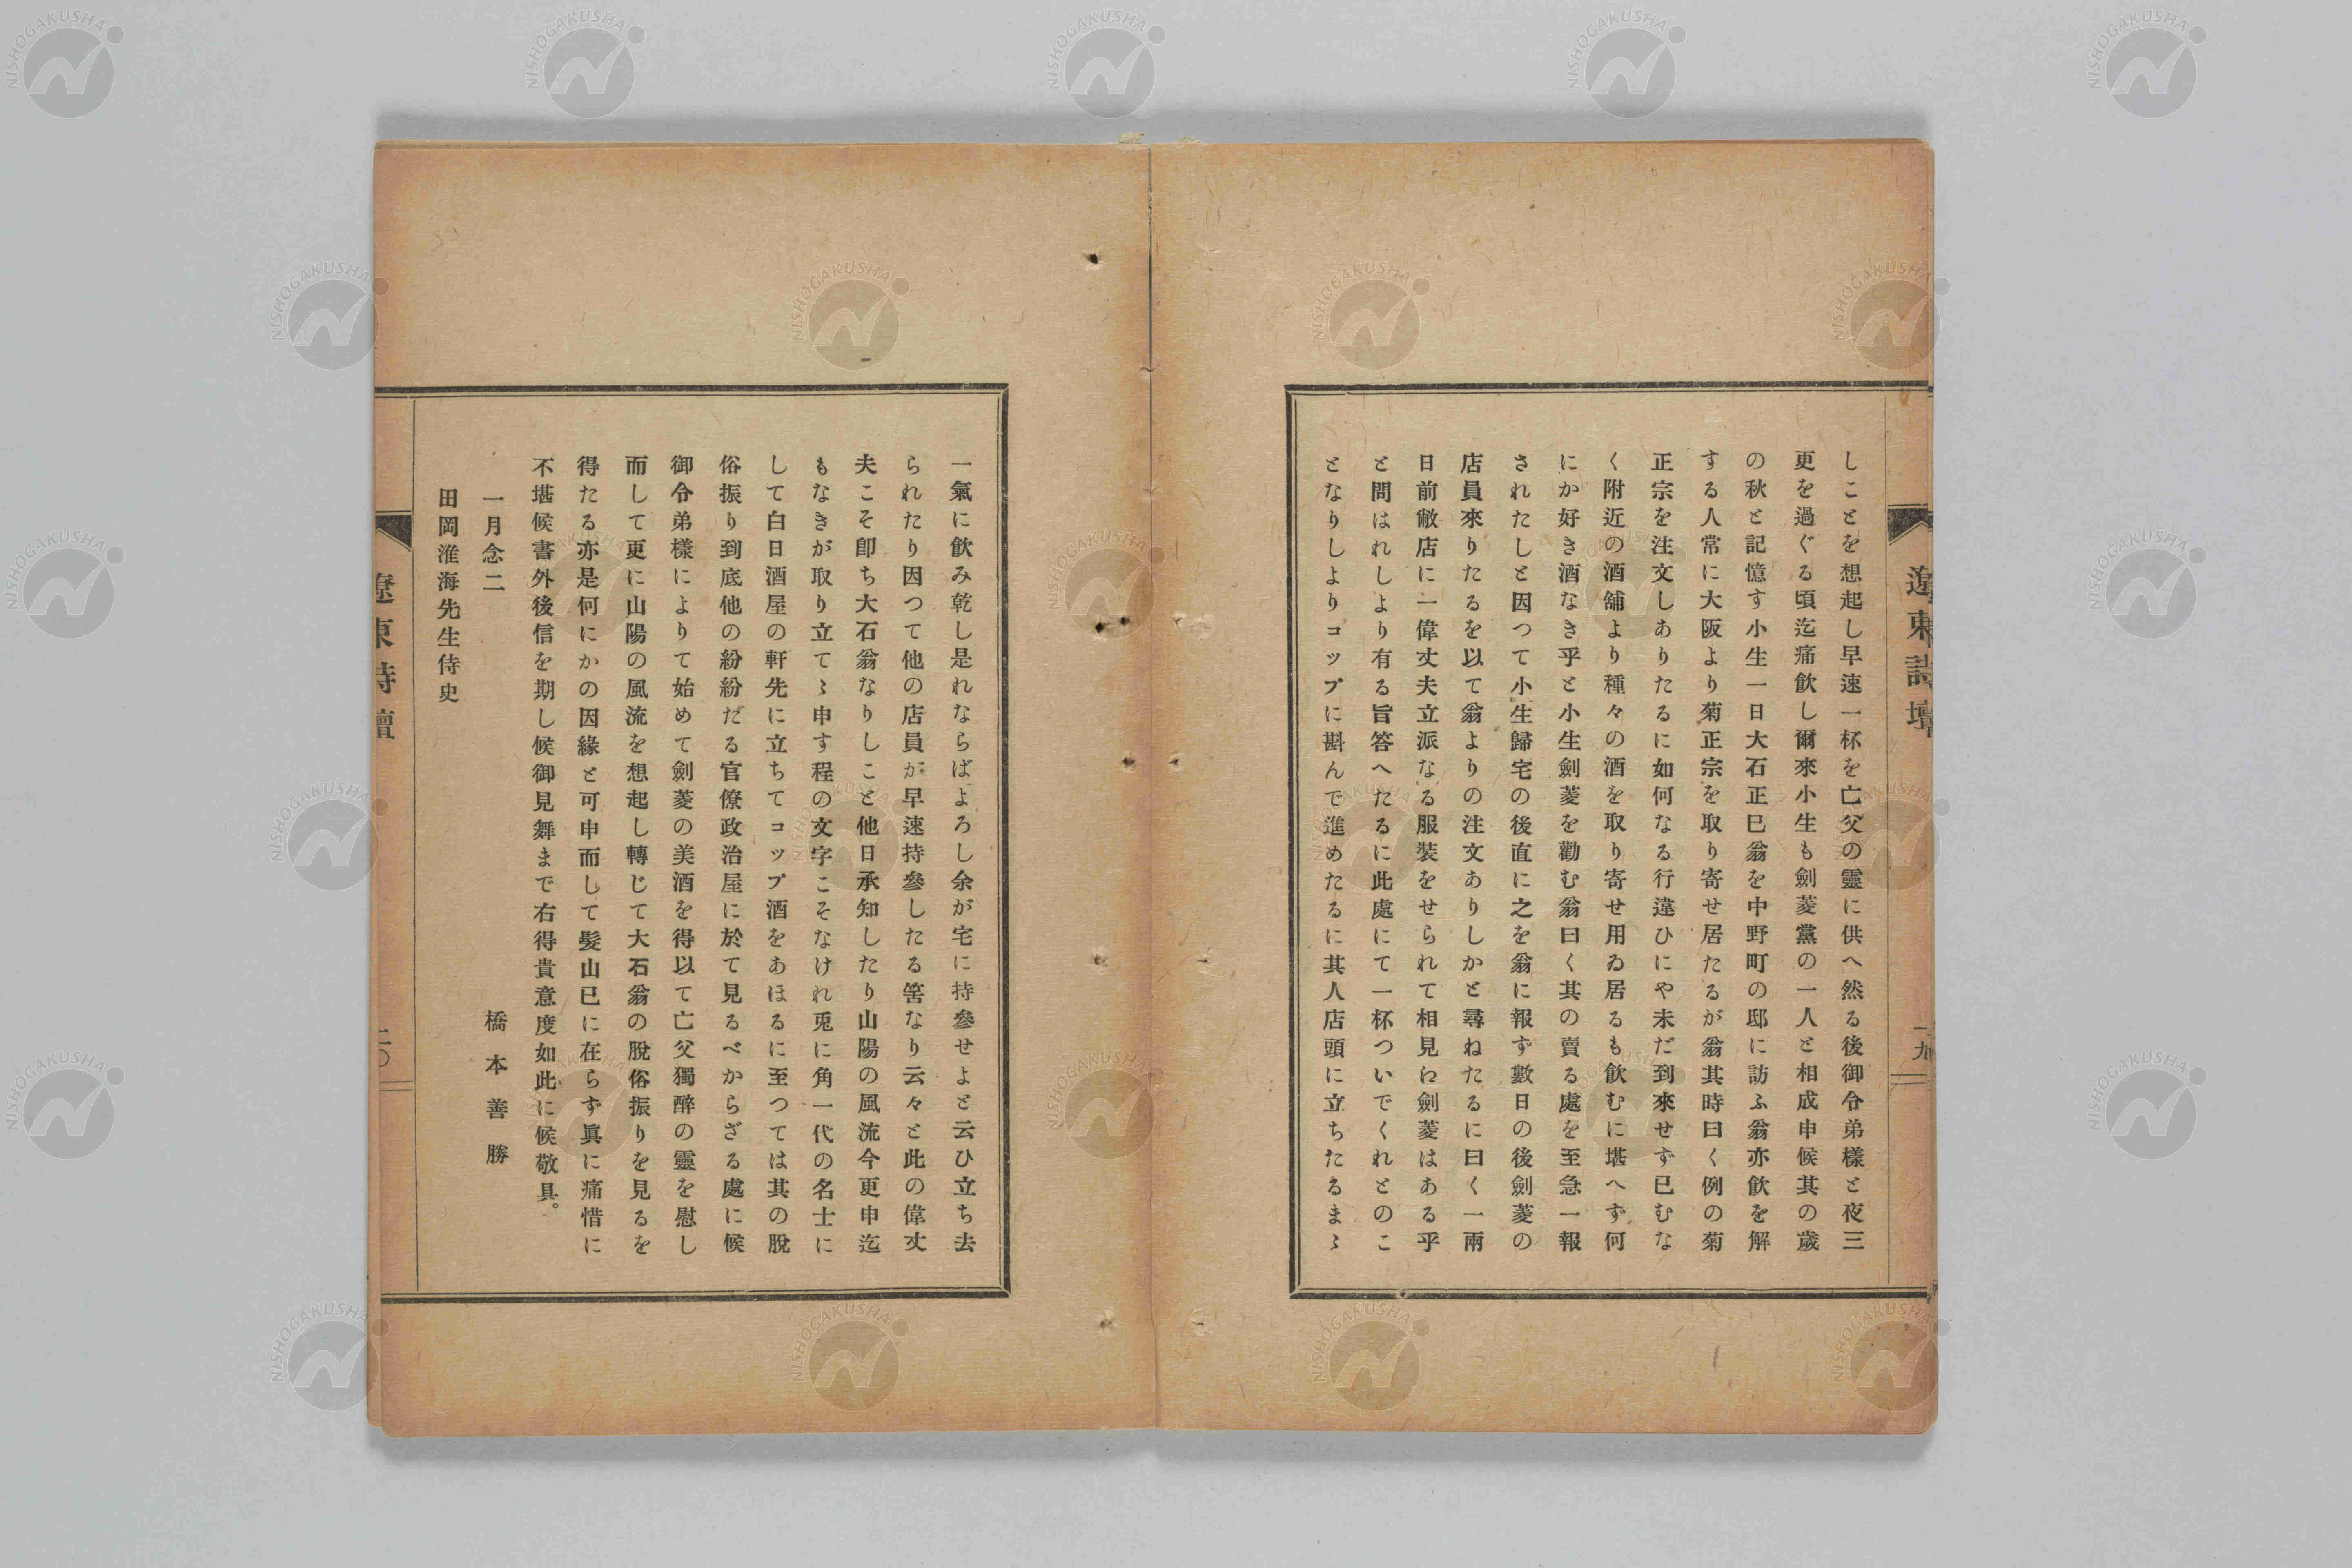 遼東詩壇
一九
しことを想起し早速一杯を亡父の靈に供へ然る後御令弟樣と夜三
更を過ぐる頃迄痛飮し爾來小生も劍菱黨の一人と相成申候其の歲
の秋と記憶す小生一日大石正巳翁を中野町の邸に訪ふ翁亦飮を解
する人常に大阪より菊正宗を取り寄せ居たるが翁其時曰く例の菊
正宗を注文しありたるに如何なる行違ひにや未だ到來せず已むな
く附近の酒舖より種々の酒を取り寄せ用ゐ居るも飮むに堪へず何
にか好き酒なき乎と小生劍菱を勸む翁曰く其の賣る處を至急一報
されたしと因つて小生歸宅の後直に之を翁に報ず數日の後劍菱の
店員來りたるを以て翁よりの注文ありしかと尋ねたるに曰く一兩
日前敝店に一偉丈夫立派なる服裝をせられて相見ね劍菱はある乎
と問はれしより有る旨答へたるに此處にて一杯ついでくれとのこ
となりしよりコップに斟んで進めたるに其人店頭に立ちたるまゝ
一氣に飮み乾し是れならばよろし余が宅に持參せよと云ひ立ち去
られたり因つて他の店員が早速持參したる筈なり云々と此の偉丈
夫こそ卽ち大石翁なりしこと他日承知したり山陽の風流今更申迄
もなきが取り立てゝ申す程の文字こそなけれ兎に角一代の名士に
して白日酒屋の軒先に立ちてコップ酒をあほるに至つては其の脫
俗振り到底他の紛紛たる官僚政治屋に於て見るべからざる處に候
御令弟樣によりて始めて劍菱の美酒を得以て亡父獨醉の靈を慰し
而して更に山陽の風流を想起し轉じて大石翁の脫俗振りを見るを
得たる亦是何にかの因緣と可申而して髮山已に在らず眞に痛惜に
不堪候書外後信を期し候御見舞まで右得貴意度如此に候敬具。
一月念二
橋本善勝
田岡淮海先生侍史
遼東詩壇
二〇
NISHOGAKUSHA